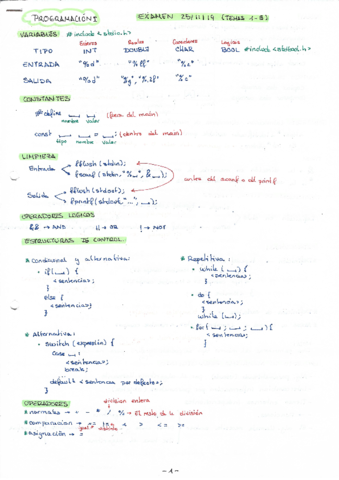 PROGRAMACIÓN I EXAMEN 25/11/19 (TEMAS 1-3)
VARIABLES #include <stdio.h>
Enteros Reales Caracteres Logicos
TIPO INT DOUBLE CHAR BOOL #include <stdbool.h>
ENTRADA "%d" "%lf" "%c"
SALIDA "%d" "%g", "%.2f" "%c"
CONSTANTES
#define __ __ (fuera del main)
nombre valor
const __ __ = __; (dentro del main)
tipo nombre valor
LIMPIEZA
fflush (stdin);
Entrada
fscanf (stdin, "%__", &__);
antes del scanf o del printf
fflush (stdout);
Salida
fprintf (stdout, "...", __);
OPERADORES LOGICOS
&& → AND || → OR ! → NOT
ESTRUCTURAS DE CONTROL
* Condicional y alternativa:
• if (__) {
<sentencias>;
}
else {
<sentencias>
}
* Alternativa:
• switch (expresión) {
case __:
<sentencias>;
break;
default <sentencias por defecto>;
}
* Repetitiva:
• while (__) {
<sentencias>;
}
• do {
<sentencias>;
}
while (__);
• for (__; __; __) {
<sentencias>;
}
OPERADORES
division entera
* normales → + - * / % → El resto de la división
* comparación → == != < > <= >=
igual
* Asignación → =
- 1 -